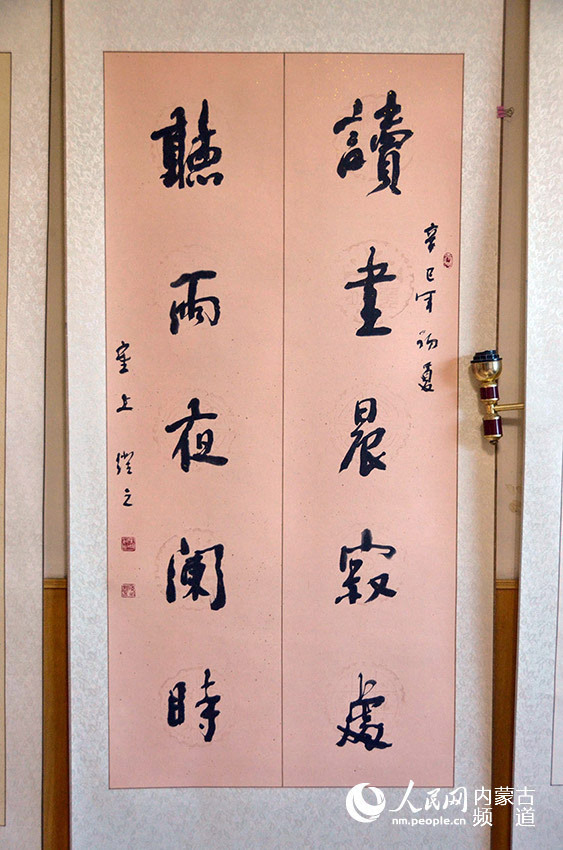 讀書晨寂處
辛巳年初夏
聽雨夜闌時
塞上燈之
人民网 内蒙古频道
nm.people.cn